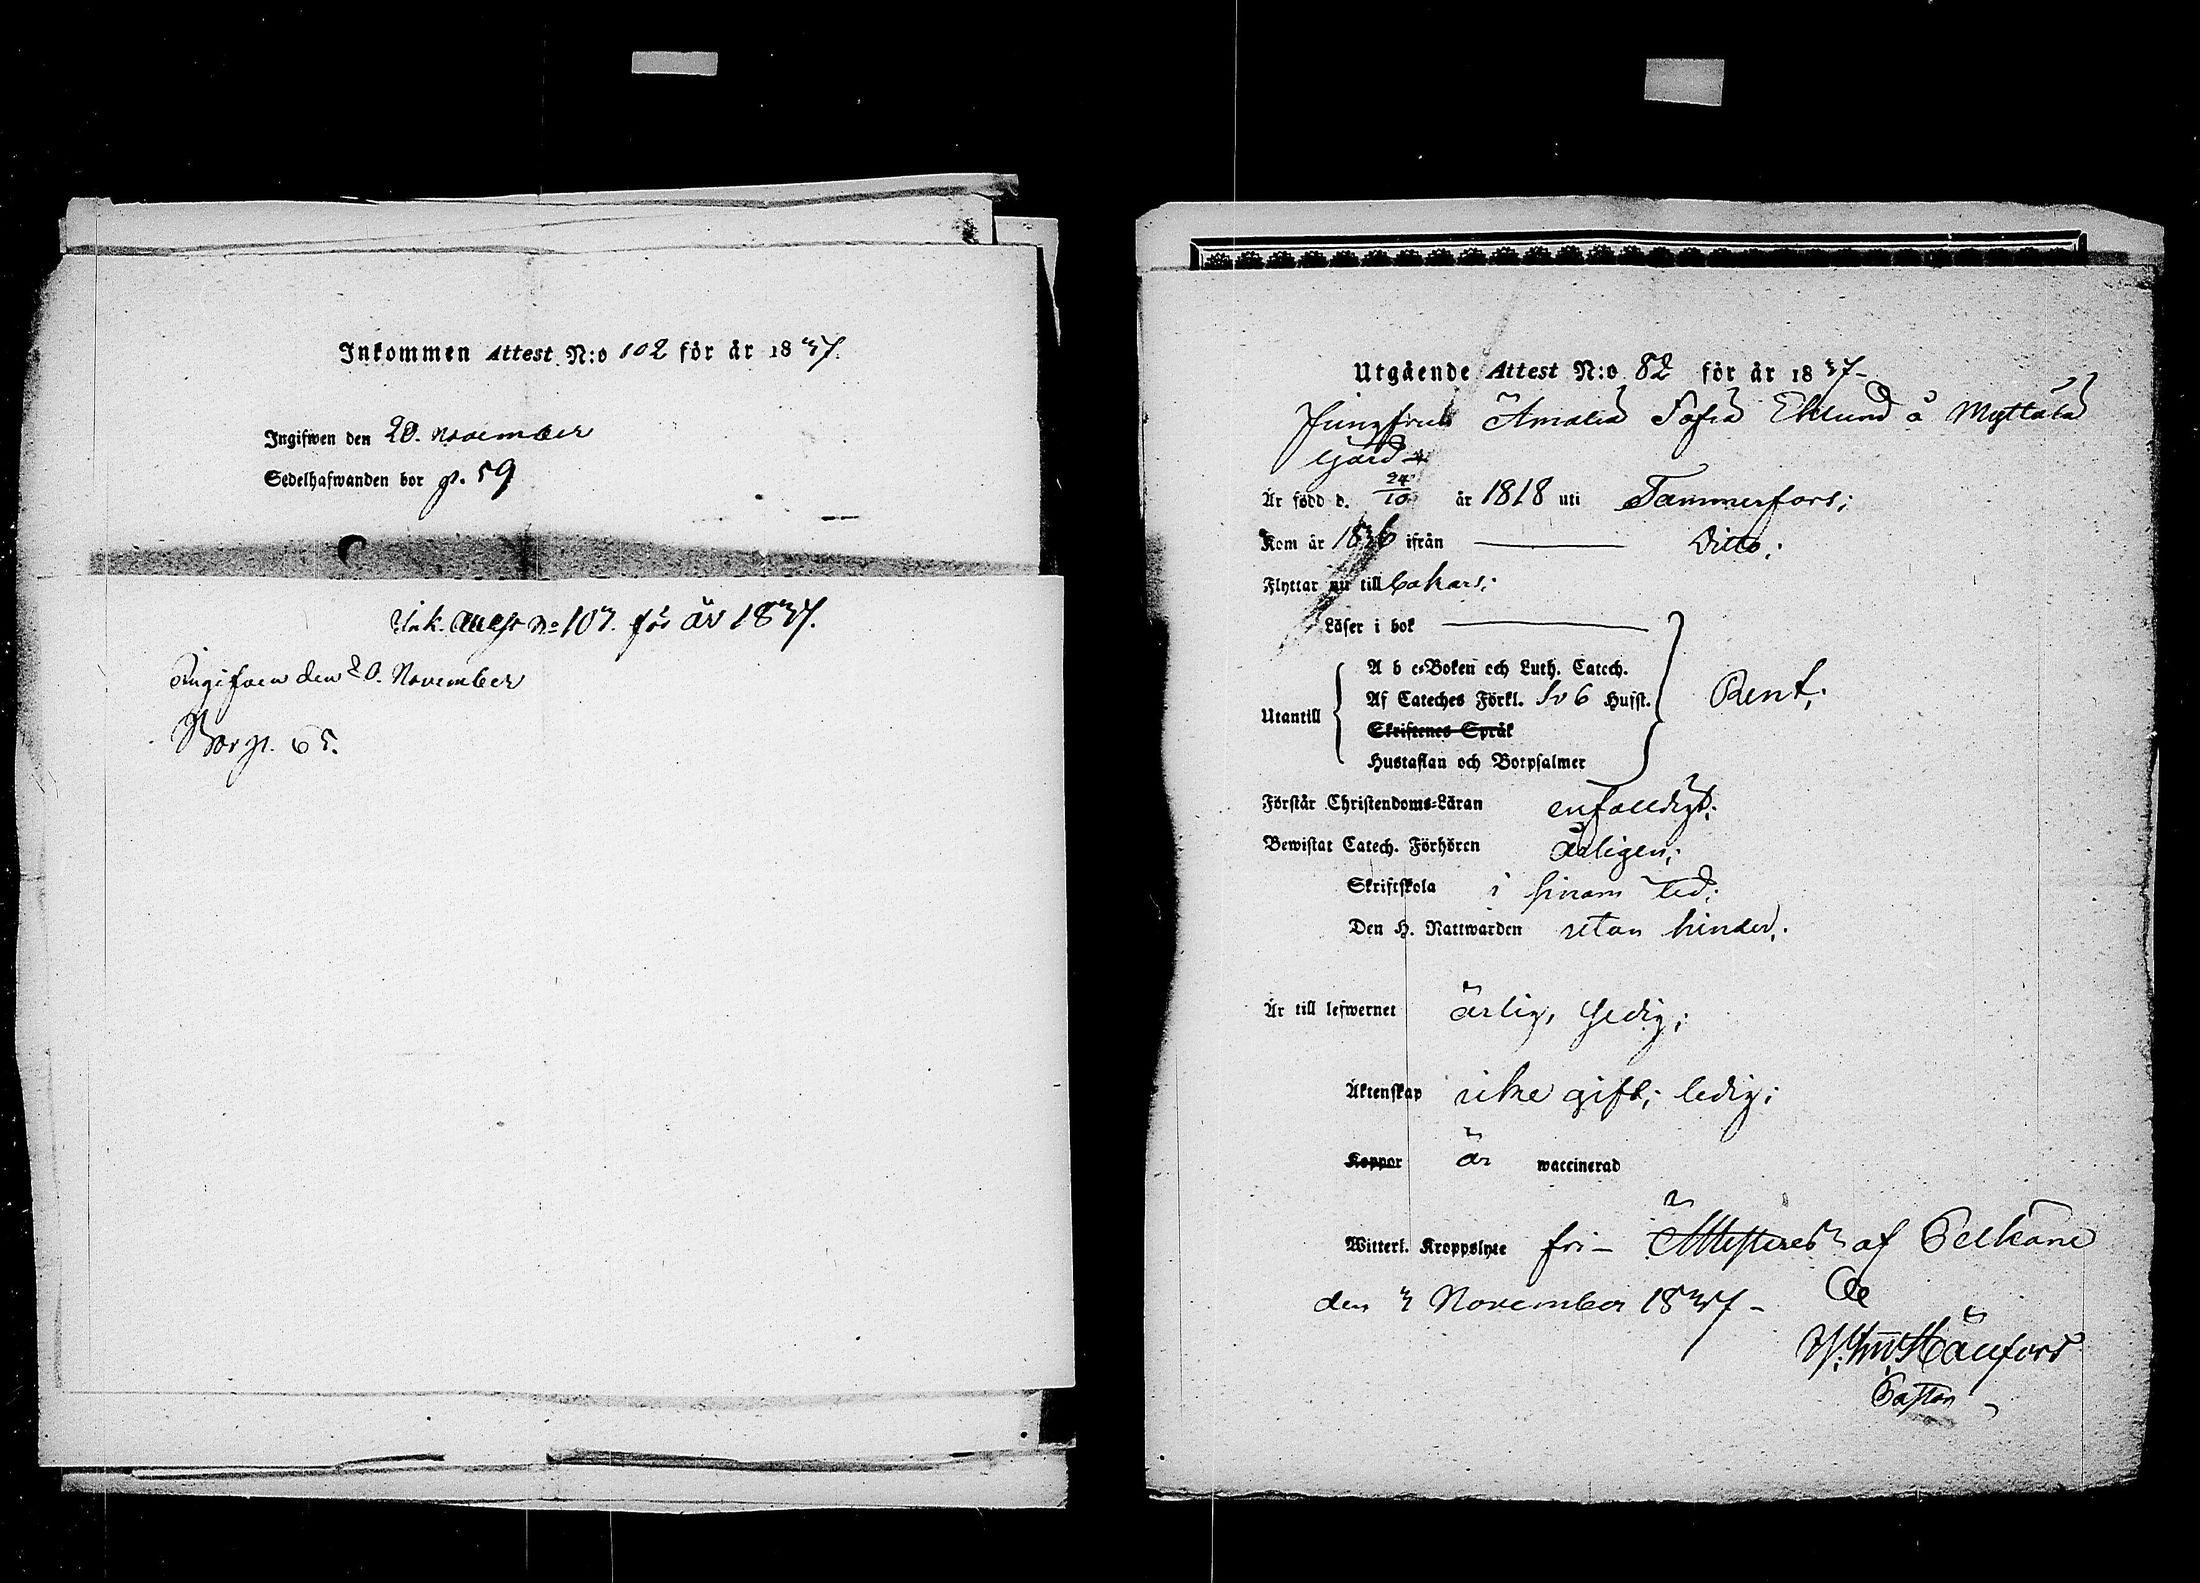 Inkommen Attest N:o 102 för år 1837.
Ingifwen den 20. November
Sedelhafwanden bor p. 59
Ink. Attest No 103. för år 1837.
Ingifven den 20. November
Bor p. 65.
Utgående Attest N:o 82 för år 1837-
Jungfrun Amalia Sofia Eklund å Myttälä
Gård
Är född d. 24/10 år 1818 uti Tammerfors;
Kom år 1836 ifrån Ditto;
Flyttar nu till
Läser i bok
A b c-Boken och Luth. Catech.
Utantill Af Cateches Förkl. Sv 6 Hufst. Rent;
Skriftenes Språk
Hustaflan och Botpsalmer
Förstår Christendoms-Läran enfaldigt;
Bewistat Catech. Förhören årligen;
Skriftskola i sinom tid;
Den H. Nattwarden utan hinder;
Är till lefwernet ärlig, sedig;
Äktenskap icke gift; ledig;
Koppor är waccinerad
Witterl. Kroppslyte fri- Attesteres af Pelkäne
den 3 November 1837-
Pastor